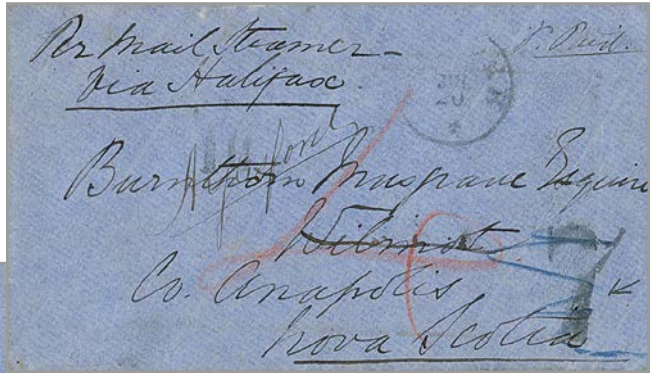 Per Mail Steamer –
Via Halifax
Paid.
20
Burnthorn Musgrave Esquire
Wilmot
Co. Anapolis
Nova Scotia